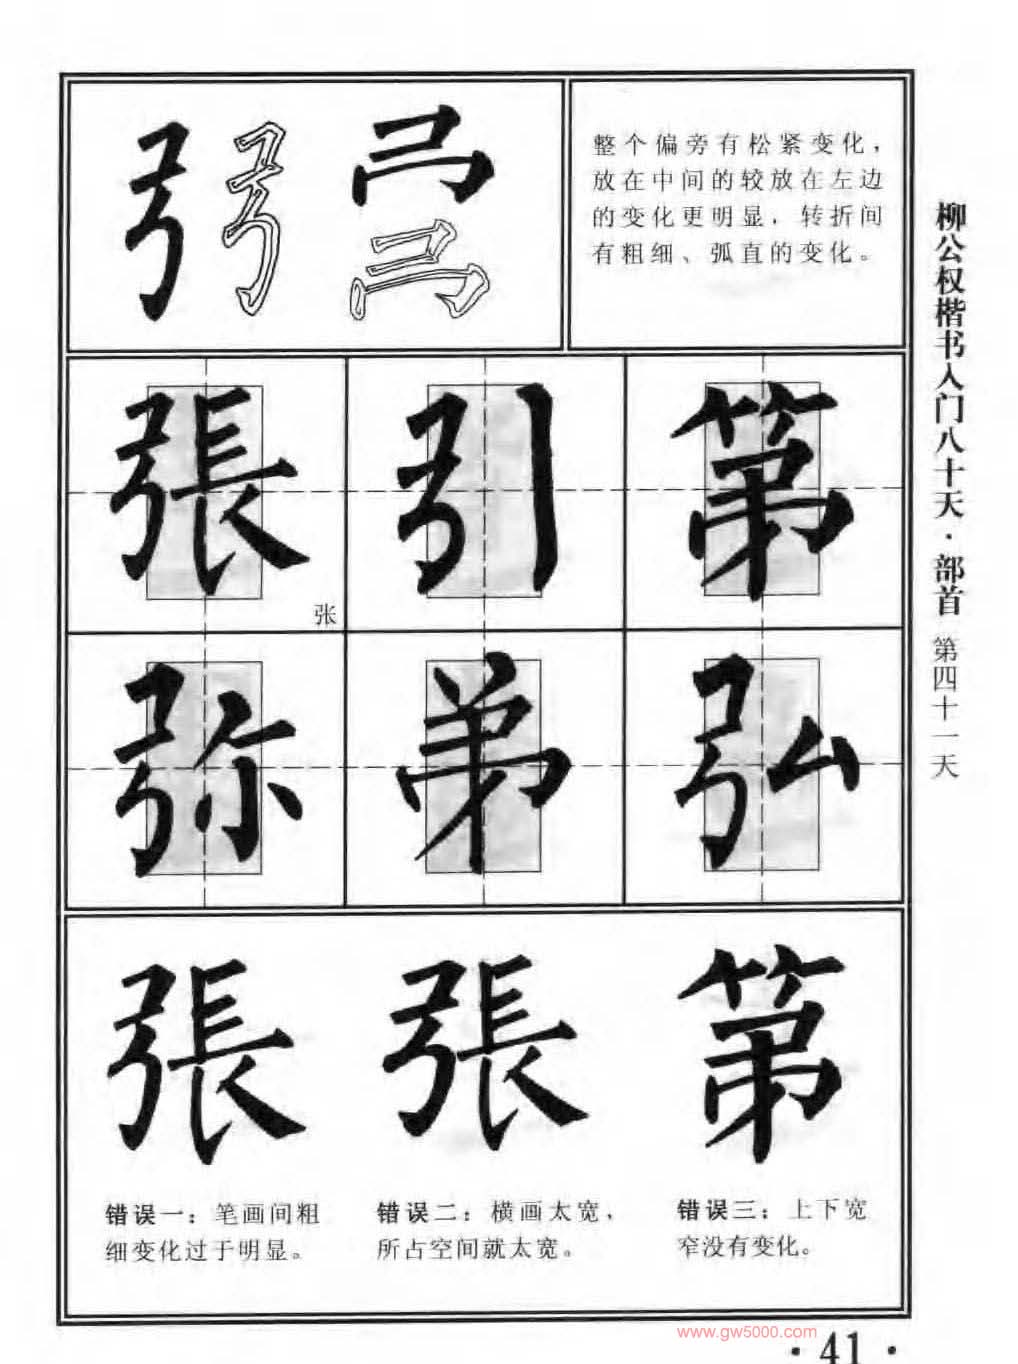 弓
整个偏旁有松紧变化，
放在中间的较放在左边
的变化更明显，转折间
有粗细、弧直的变化。
張 引 第
张
弥 弟 弘
張 張 第
错误一：笔画间粗
细变化过于明显。
错误二：横画太宽，
所占空间就太宽。
错误三：上下宽
窄没有变化。
柳公权楷书入门八十天·部首 第四十一天
www.gw5000.com
·41·